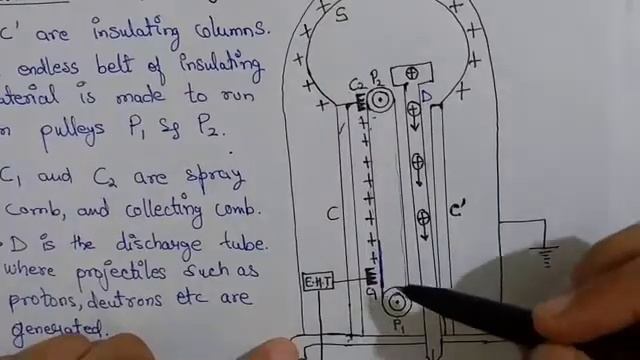 C' are insulating columns.
endless belt of insulating
material is made to run
on pulleys P₁ & P₂.
C₁ and C₂ are spray
comb, and collecting comb.
D is the discharge tube.
where projectiles such as
protons, deutrons etc are
generated.
S
C₂ P₂
D
C
C'
E.H.T
C₁
P₁